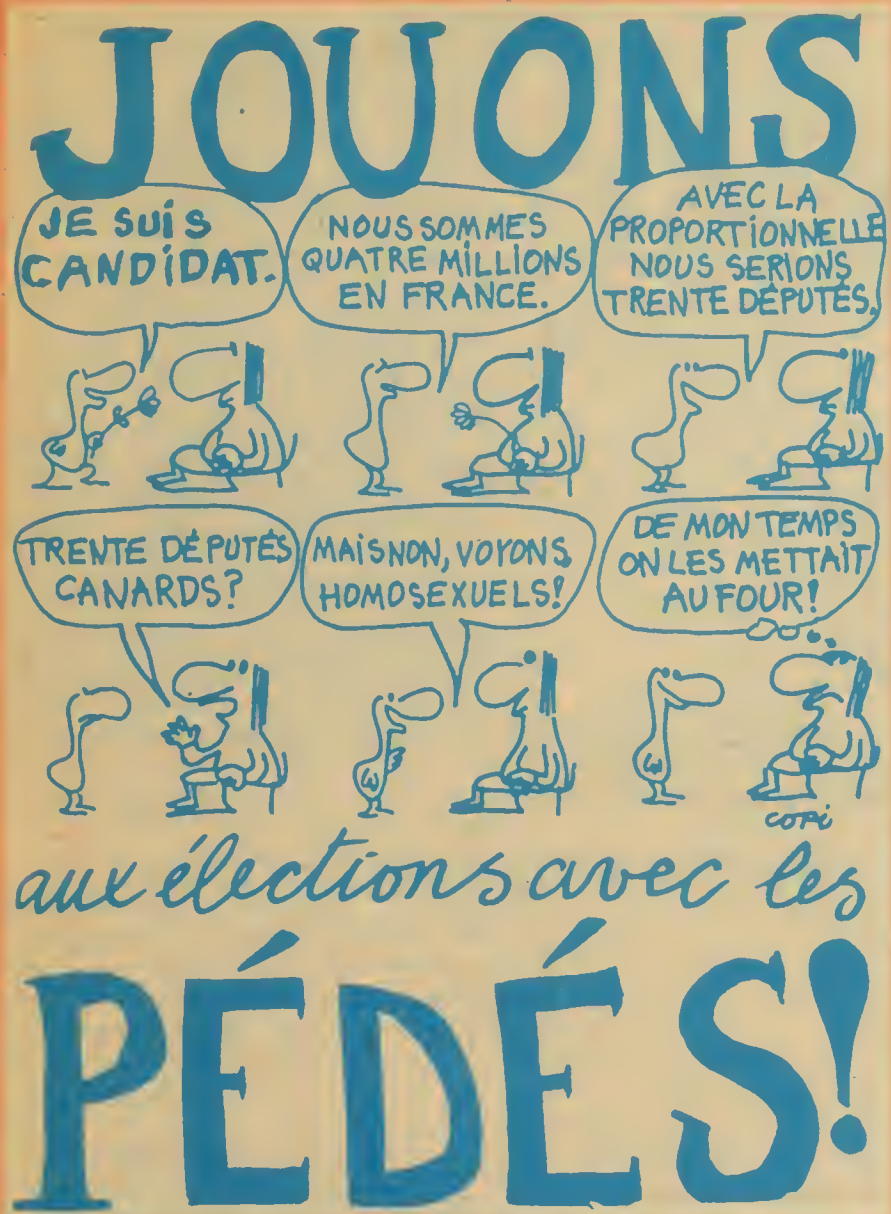 JOUONS
JE SUiS
CANDiDAT.
NOUS SOMMES
QUATRE MiLLiONS
EN FRANCE.
AVEC LA
PROPORTiONNELLE
NOUS SERiONS
TRENTE DÉPUTÉS.
TRENTE DÉPUTÉS
CANARDS?
MAiS NON, VOYONS,
HOMOSEXUELS!
DE MON TEMPS
ON LES METTAiT
AU FOUR!
COPi
aux élections avec les
PÉDÉS!